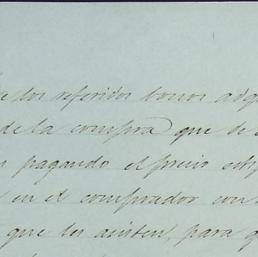 los referidos bonos
de la compra que de
pagando el precio
en el comprador con
que les asisten, para q